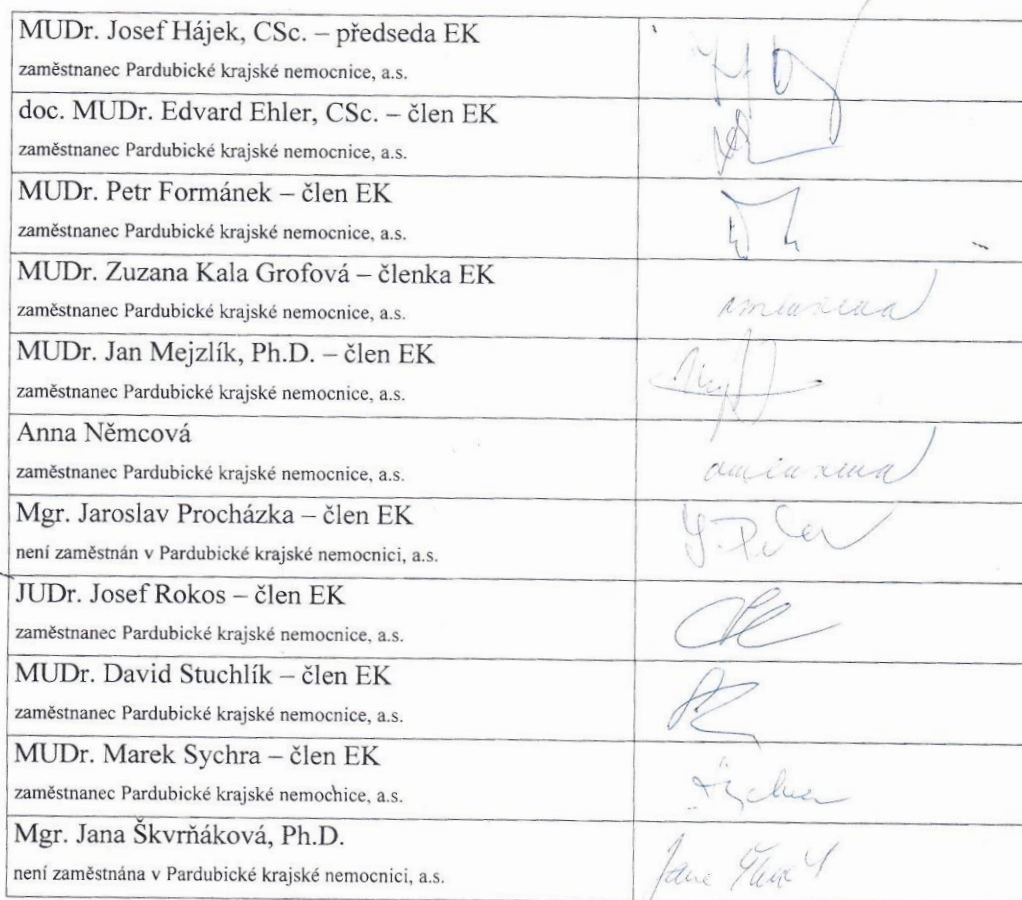 MUDr. Josef Hájek, CSc. – předseda EK
zaměstnanec Pardubické krajské nemocnice, a.s.
doc. MUDr. Edvard Ehler, CSc. – člen EK
zaměstnanec Pardubické krajské nemocnice, a.s.
MUDr. Petr Formánek – člen EK
zaměstnanec Pardubické krajské nemocnice, a.s.
MUDr. Zuzana Kala Grofová – členka EK
zaměstnanec Pardubické krajské nemocnice, a.s.
omluvena
MUDr. Jan Mejzlík, Ph.D. – člen EK
zaměstnanec Pardubické krajské nemocnice, a.s.
Anna Němcová
zaměstnanec Pardubické krajské nemocnice, a.s.
omluvena
Mgr. Jaroslav Procházka – člen EK
není zaměstnán v Pardubické krajské nemocnici, a.s.
JUDr. Josef Rokos – člen EK
zaměstnanec Pardubické krajské nemocnice, a.s.
MUDr. David Stuchlík – člen EK
zaměstnanec Pardubické krajské nemocnice, a.s.
MUDr. Marek Sychra – člen EK
zaměstnanec Pardubické krajské nemocnice, a.s.
Mgr. Jana Škvrňáková, Ph.D.
není zaměstnána v Pardubické krajské nemocnici, a.s.